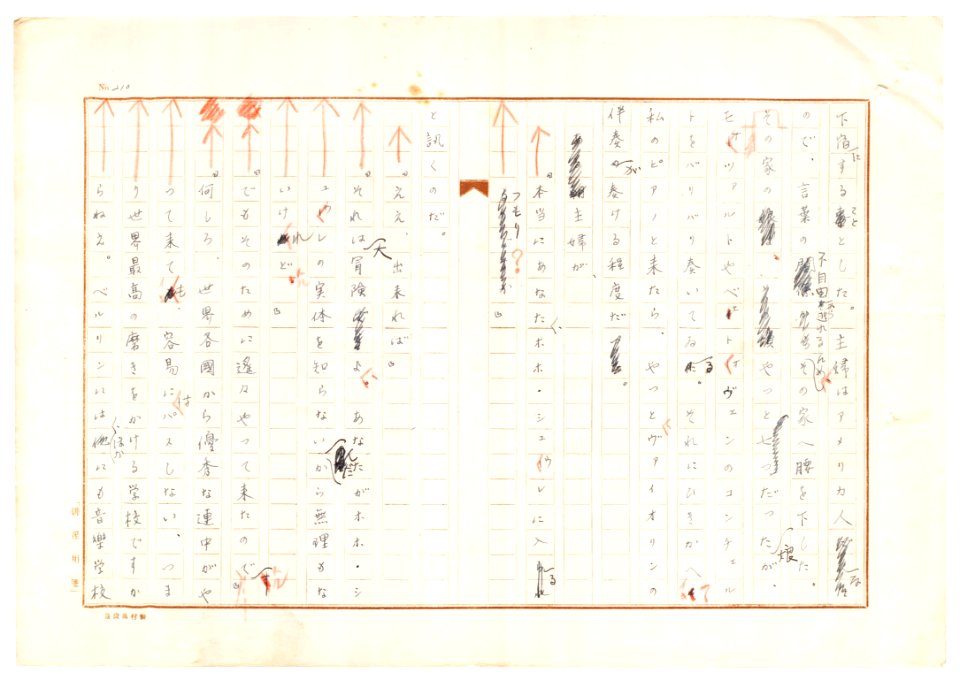 No. 210
下宿することとした。主婦はアメリカ人な
ので、言葉の不自由を遁れるためその家へ腰を下した。
その家の娘、やつとやつだつたが、
モーツアルトやベートーヴェンのコンチェル
トをベリバリ奏いてゐる。それにひきかへて
私のピアノと来たら、やつとヴァイオリンの
伴奏が奏ける程度だ。
主婦が、
『本当にあなたホホ・シューレに入る
つもり?』
と訊くのだ。
『ええ、出来れば』
『それは大冒険よ、あなたがホホ・シ
ューレの実体を知らないんだから無理もな
いけれど』
『でもそのために遙々やつて来たのです』
『何しろ、世界各國から優秀な連中がや
つて来ても、容易にはパスしない、つま
り世界最高の磨きをかける学校ですか
らねえ。ベルリンにはほかにも音樂学校